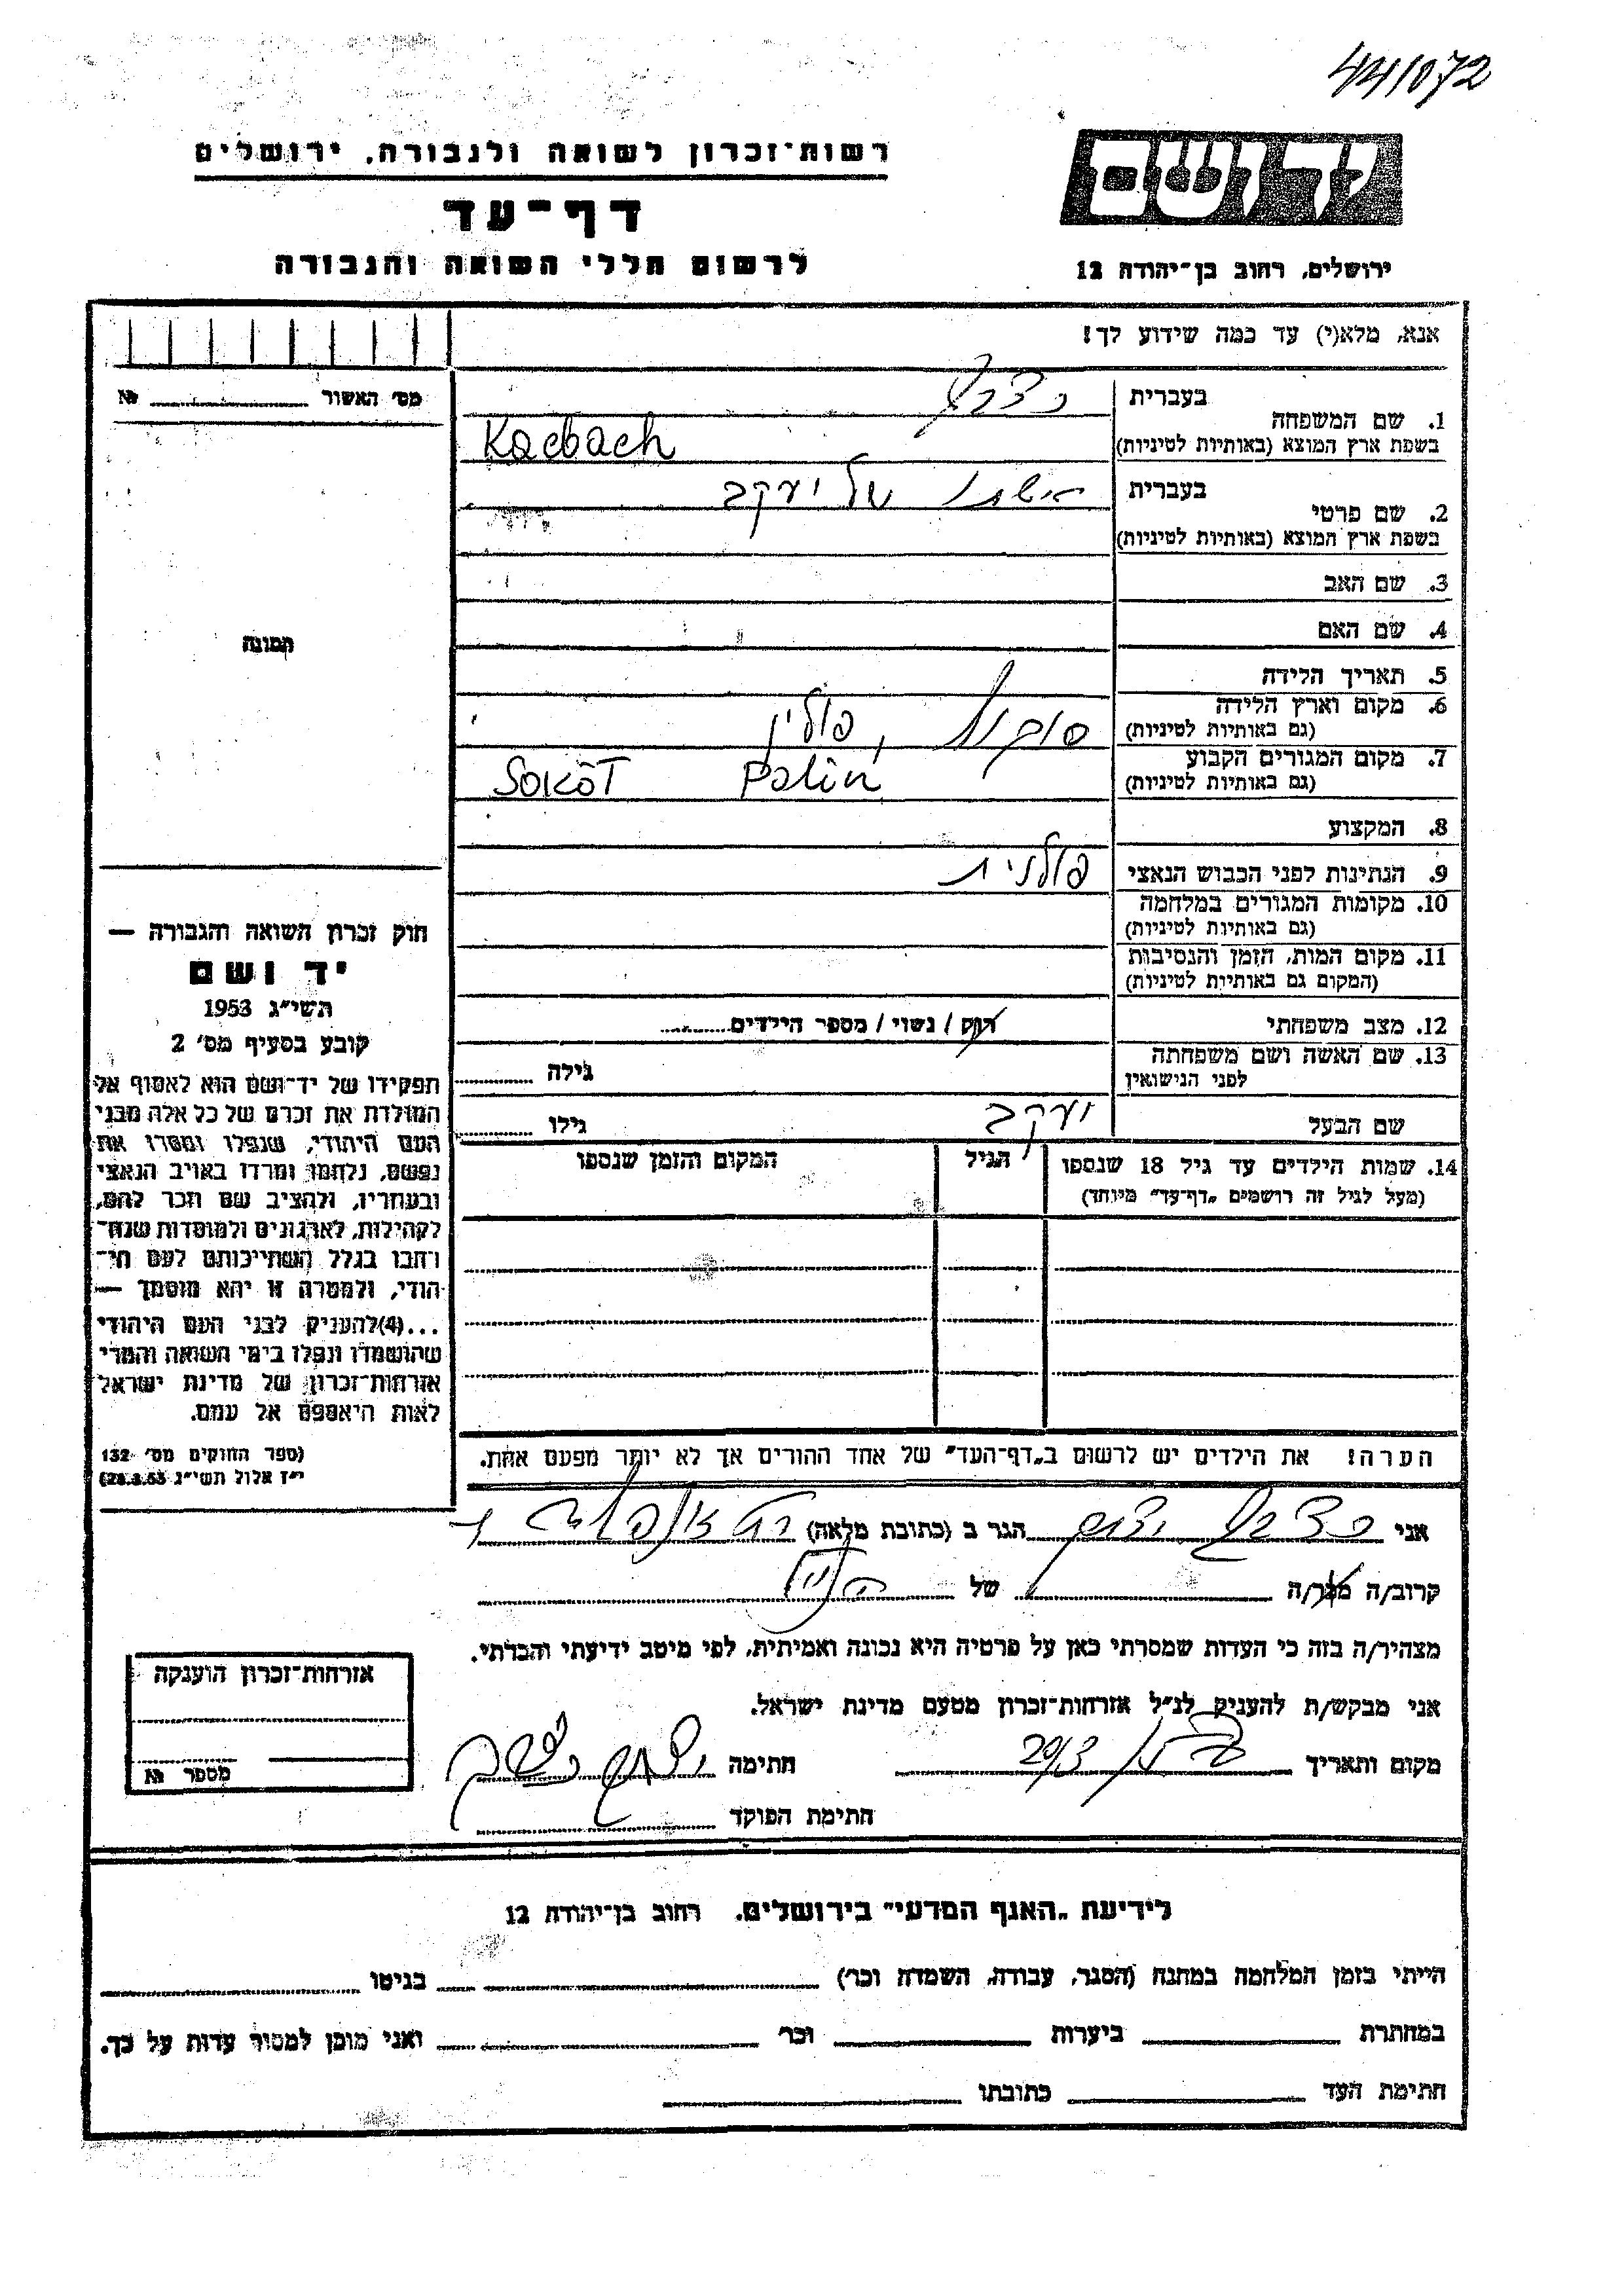 441072
רשות־זכרון לשואה ולגבורה, ירושלים
יד ושם
דף־עד
לרשום חללי השואה והגבורה
ירושלים, רחוב בן־יהודה 12
אנא, מלא(י) עד כמה שידוע לך!
מס׳ האשור № 
בעברית
1. שם המשפחה
בשפת ארץ המוצא (באותיות לטיניות) Kacbach
בעברית אישתו של יעקב
2. שם פרטי
בשפת ארץ המוצא (באותיות לטיניות)
3. שם האב
4. שם האם
תמונה
5. תאריך הלידה
6. מקום וארץ הלידה
(גם באותיות לטיניות) פולין
7. מקום המגורים הקבוע
(גם באותיות לטיניות) Sokôt Polin
8. המקצוע
9. הנתינות לפני הכבוש הנאצי פולנית
10. מקומות המגורים במלחמה
(גם באותיות לטיניות)
11. מקום המות, הזמן והנסיבות
(המקום גם באותיות לטיניות)
12. מצב משפחתי רוק / נשוי / מספר הילדים
13. שם האשה ושם משפחתה
לפני הנישואין גילה
שם הבעל יעקב גילו
14. שמות הילדים עד גיל 18 שנספו הגיל המקום והזמן שנספו
(מעל לגיל זה רושמים „דף־עד״ מיוחד)
הערה! את הילדים יש לרשום ב„דף־העד״ של אחד ההורים אך לא יותר מפעם אחת.
חוק זכרון השואה והגבורה —
יד ושם
תשי״ג 1953
קובע בסעיף מס׳ 2
תפקידו של יד־ושם הוא לאסוף אל
המולדת את זכרם של כל אלה מבני
העם היהודי, שנפלו ומסרו את
נפשם, נלחמו ומרדו באויב הנאצי
ובעוזריו, ולהציב שם וזכר להם,
לקהילות, לארגונים ולמוסדות שנח־
רבו בגלל השתייכותם לעם הי־
הודי, ולמטרה זו יהא מוסמך —
...(4)להעניק לבני העם היהודי
שהושמדו ונפלו בימי השואה והמרי
אזרחות־זכרון של מדינת ישראל
לאות היאספם אל עמם.
(ספר החוקים מס׳ 132
י״ז אלול תשי״ג 28.8.53)
אני הגר ב (כתובת מלאה)
קרוב/ה מכר/ה של
מצהיר/ה בזה כי העדות שמסרתי כאן על פרטיה היא נכונה ואמיתית, לפי מיטב ידיעתי והכרתי.
אני מבקש/ת להעניק לנ״ל אזרחות־זכרון מטעם מדינת ישראל.
מקום ותאריך 20/3 חתימה
חתימת הפוקד
אזרחות־זכרון הוענקה
מספר №
לידיעת „האגף המדעי״ בירושלים, רחוב בן־יהודה 12
הייתי בזמן המלחמה במחנה (הסגר, עבודה, השמדה וכו׳) בגיטו
במחתרת ביערות וכו׳ ואני מוכן למסור עדות על כך.
חתימת העד כתובתו